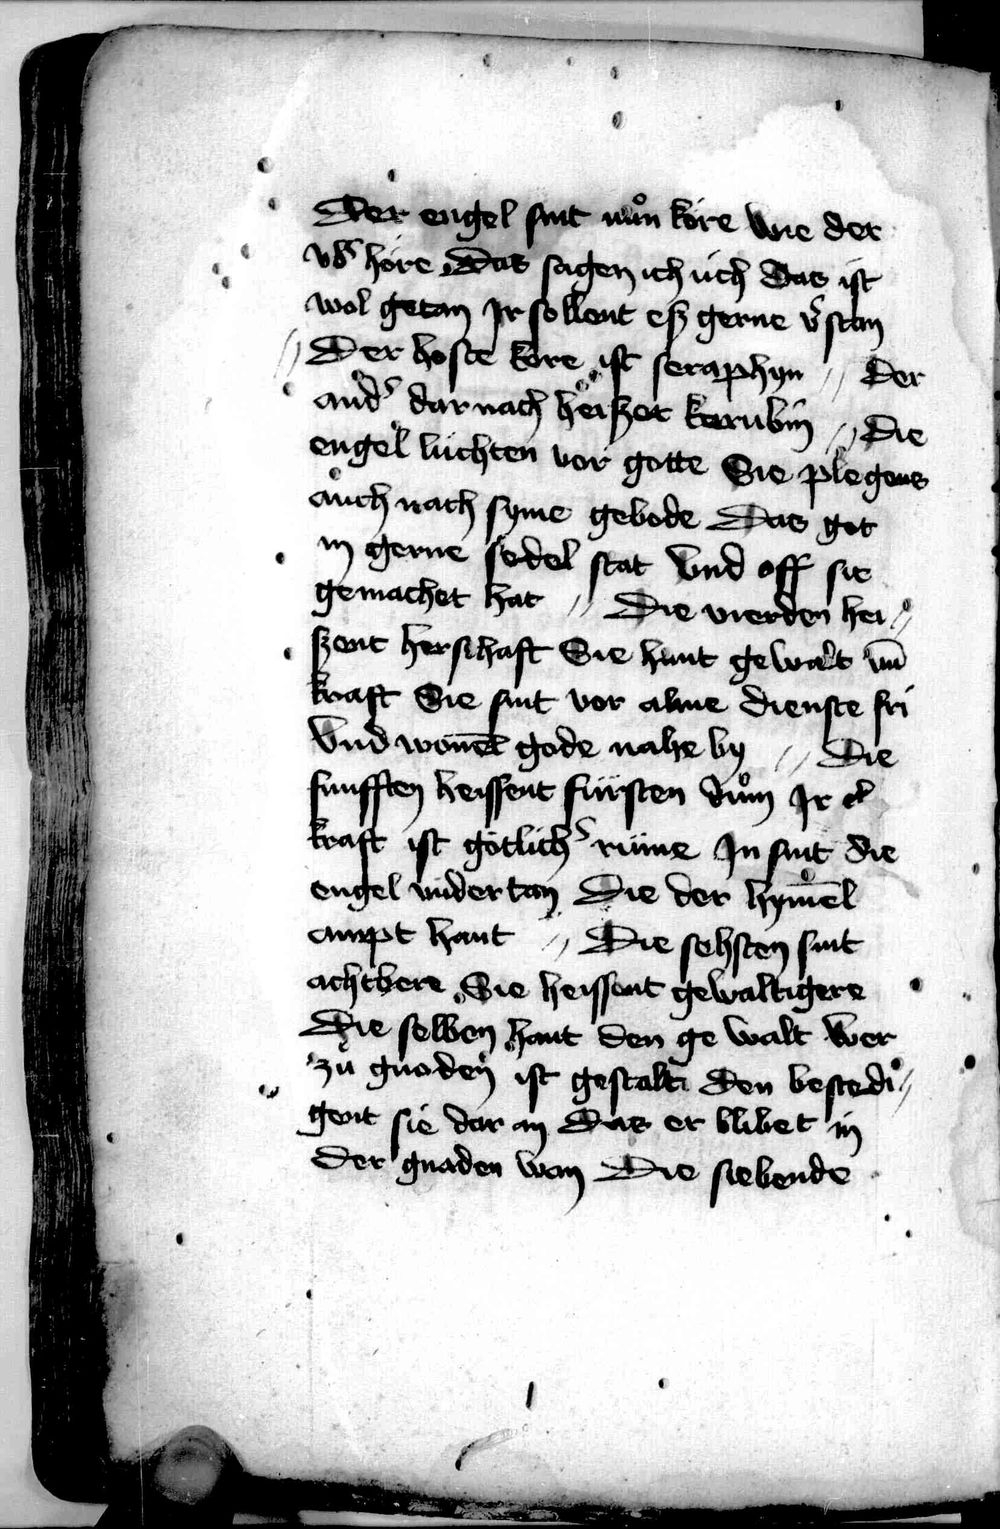 Der engel sint nuͦn kore wie der
vbͤ hore Das sagen ich uch Das ist
wol getan Jr sollent eß gerne v̾stan
// Der hoste kore ist seraphyn // Der
andͤ dar nach heißet kerubin // Die
engel luchten vor gotte Sie plegens
auch nach syme gebode Das got
in gerne sedel stat Vnd off sie
gemachet hat // Die vierden hei//
ßent herschaft Sie hant gewalt vn̄
kraft Sie sint vor alme dienste fri
Vnd wonēt gode nahe by // Die
funfften heissent fürsten duͦm Jr
kraft ist gotlichͤ rüme Jn sint die
engel vndertan Die der hymēl
ampt hant // Die sehsten sint
achtbere Sie heissent gewaltigere
Die selben hant den ge walt Wer
zu gnaden ist gestalt Den bestedi//
gent sie dar an Das er blibet in
der gnaden wan Die siebende